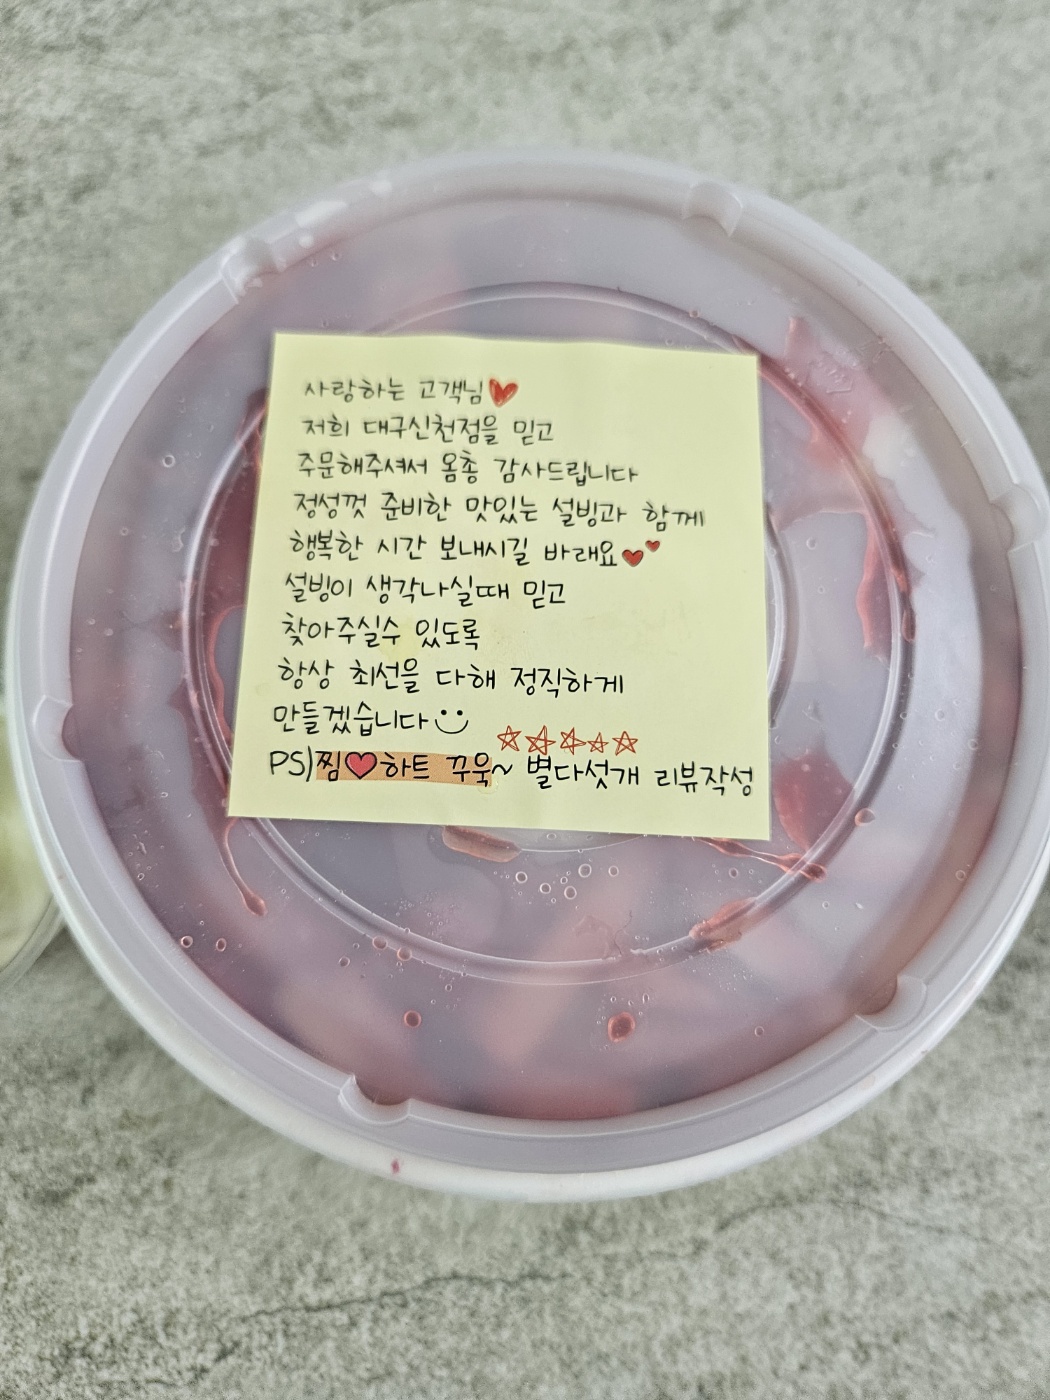 사랑하는 고객님❤
저희 대구신천점을 믿고
주문해주셔서 옴총 감사드립니다
정성껏 준비한 맛있는 설빙과 함께
행복한 시간 보내시길 바래요❤❤
설빙이 생각나실때 믿고
찾아주실수 있도록
항상 최선을 다해 정직하게
만들겠습니다
☆☆☆☆☆
PS)찜❤하트 꾸욱~ 별다섯개 리뷰작성